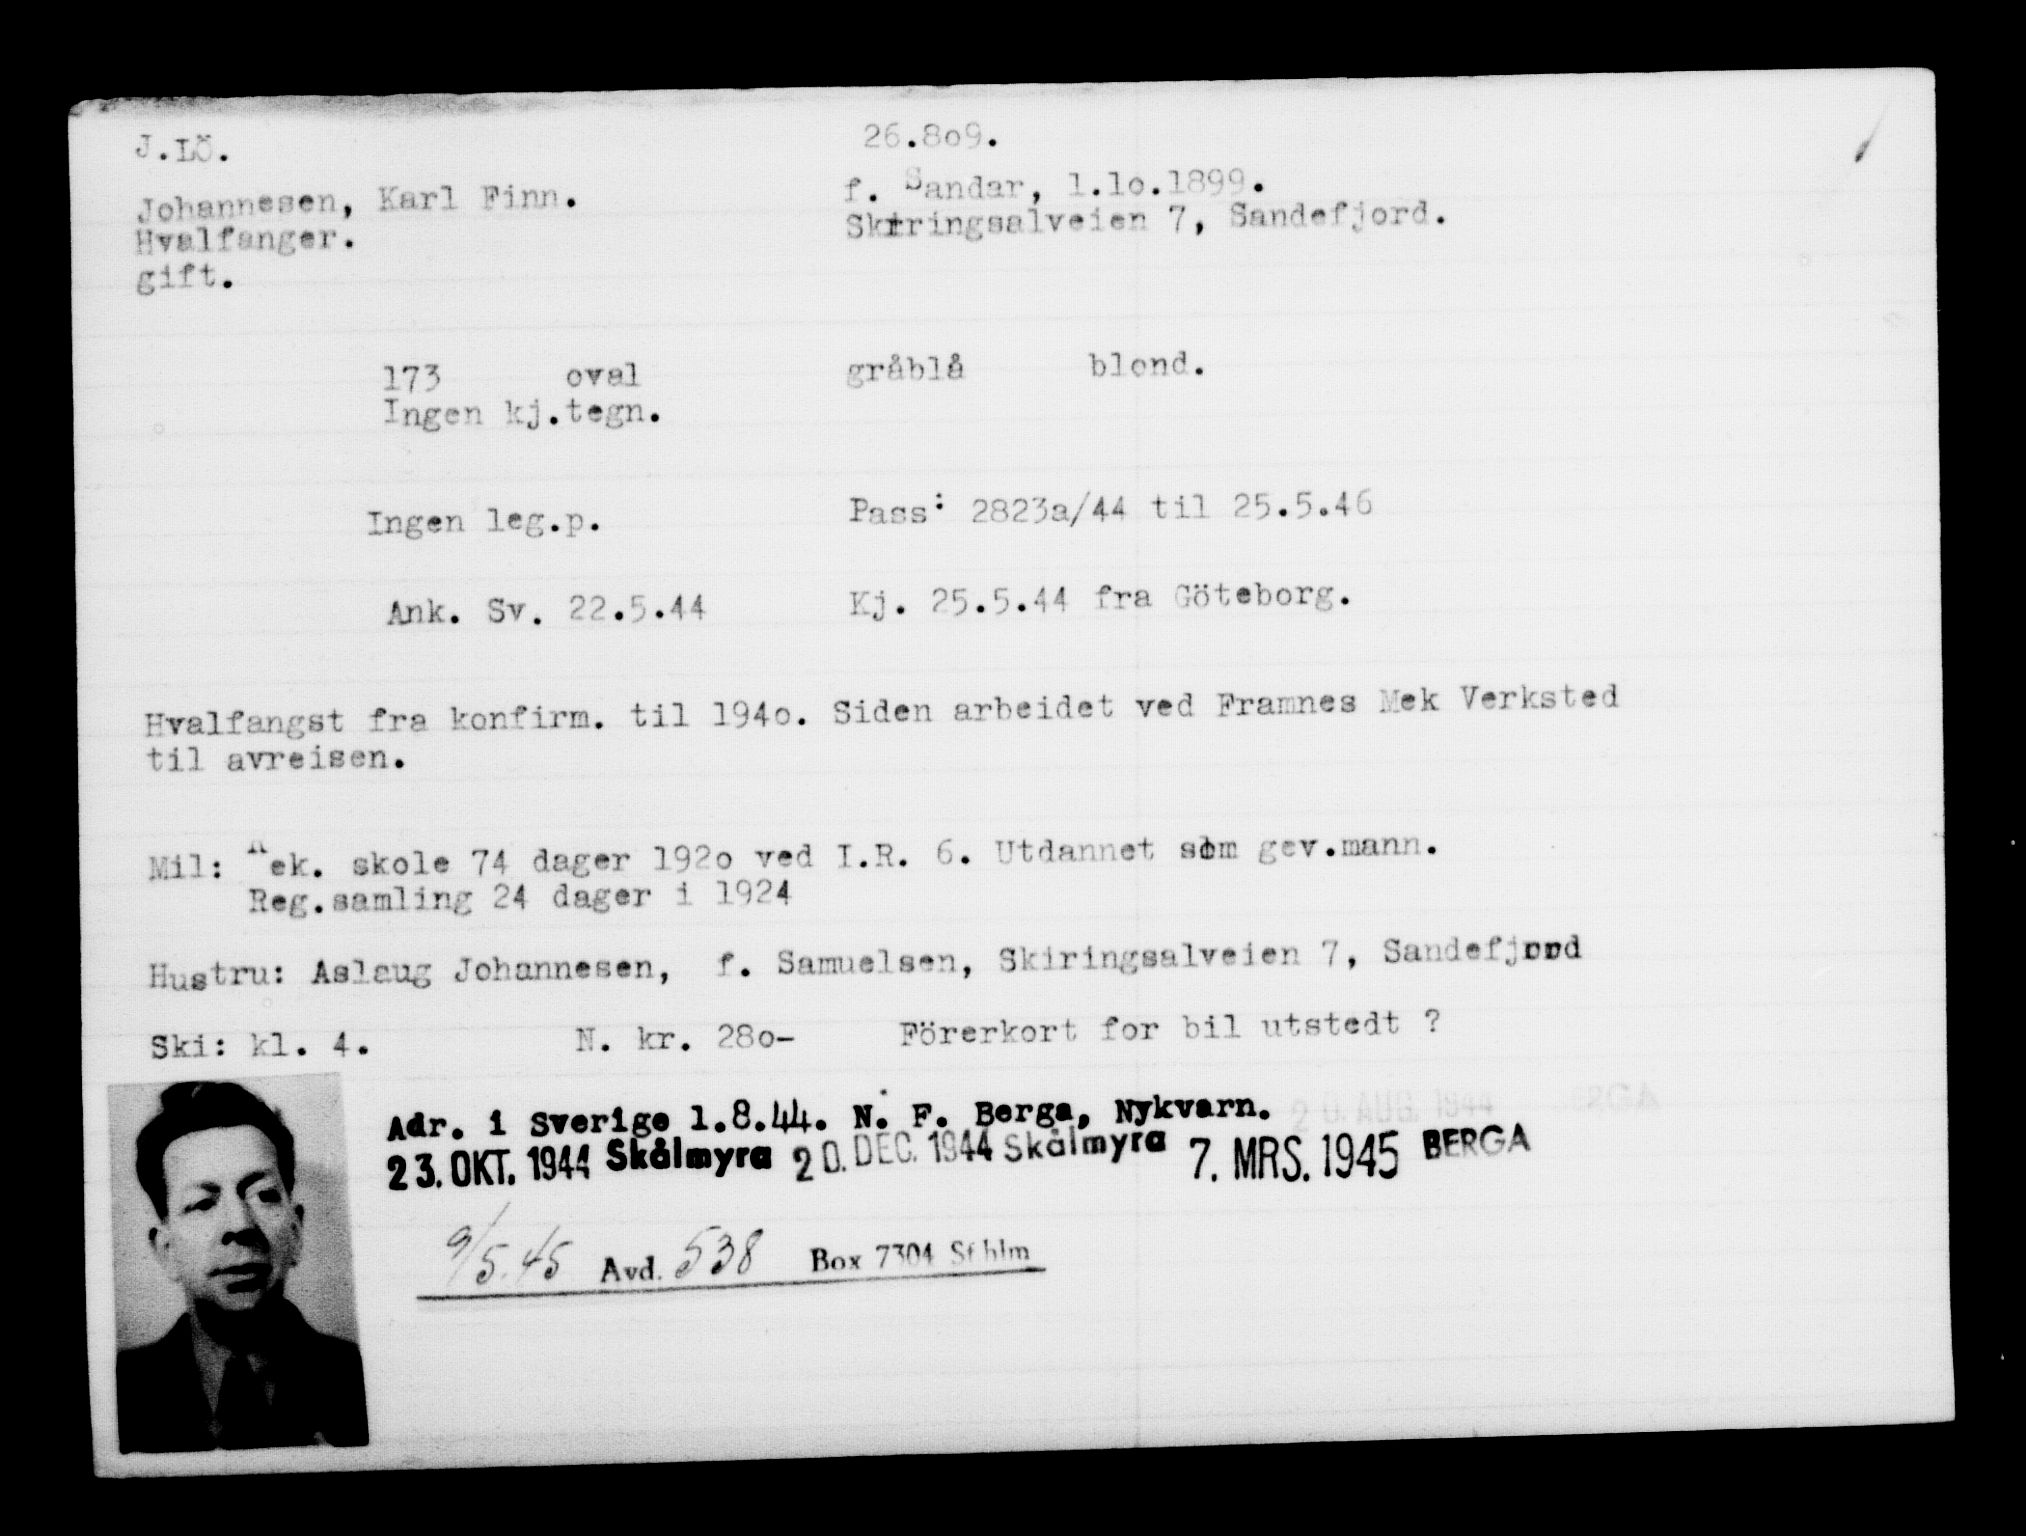 J.Lö. 26.8o9.
Johannesen, Karl Finn. f. Sandar, 1.1o.1899.
Hvalfanger. Skiringsalveien 7, Sandefjord.
gift.
173 oval gråblå blond.
Ingen kj.tegn.
Ingen leg.p. Pass: 2823a/44 til 25.5.46
Ank. Sv. 22.5.44 Kj. 25.5.44 fra Göteborg.
Hvalfangst fra konfirm. til 194o. Siden arbeidet ved Framnes Mek Verksted
til avreisen.
Mil: Rek. skole 74 dager 192o ved I.R. 6. Utdannet som gev.mann.
Reg.samling 24 dager i 1924
Hustru: Aslaug Johannesen, f. Samuelsen, Skiringsalveien 7, Sandefjord
Ski: kl. 4. N. kr. 28o- Förerkort for bil utstedt ?
Adr. i Sverige 1.8.44. N. F. Berga, Nykvarn. 20. AUG. 1944 BERGA
23. OKT. 1944 Skålmyra 20. DEC. 1944 Skålmyra 7. MRS. 1945 BERGA
9/5.45 Avd. 538 Box 7304 Sthlm